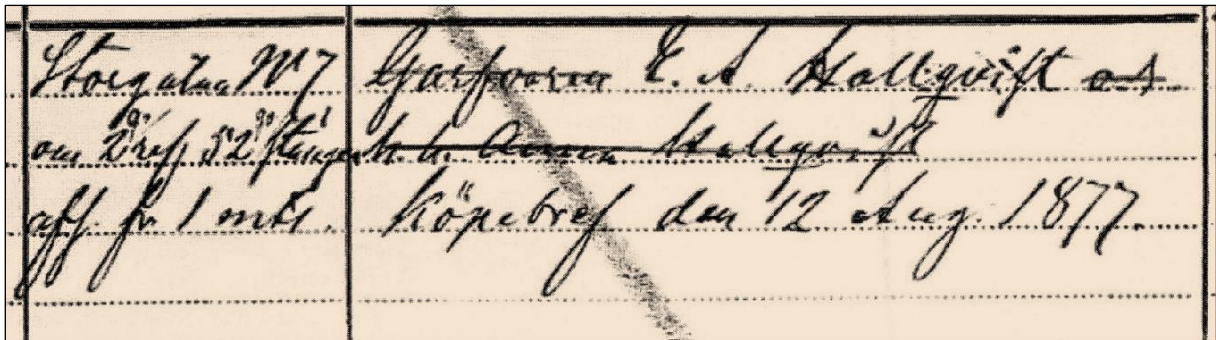 Storgatan No 7
om 2 ref 52 stänger
fr 1 mtl.
Garfvaren E. A. Hallqvist
h. h. Anna Hallqvist
Köpebref den 12 Aug. 1877.